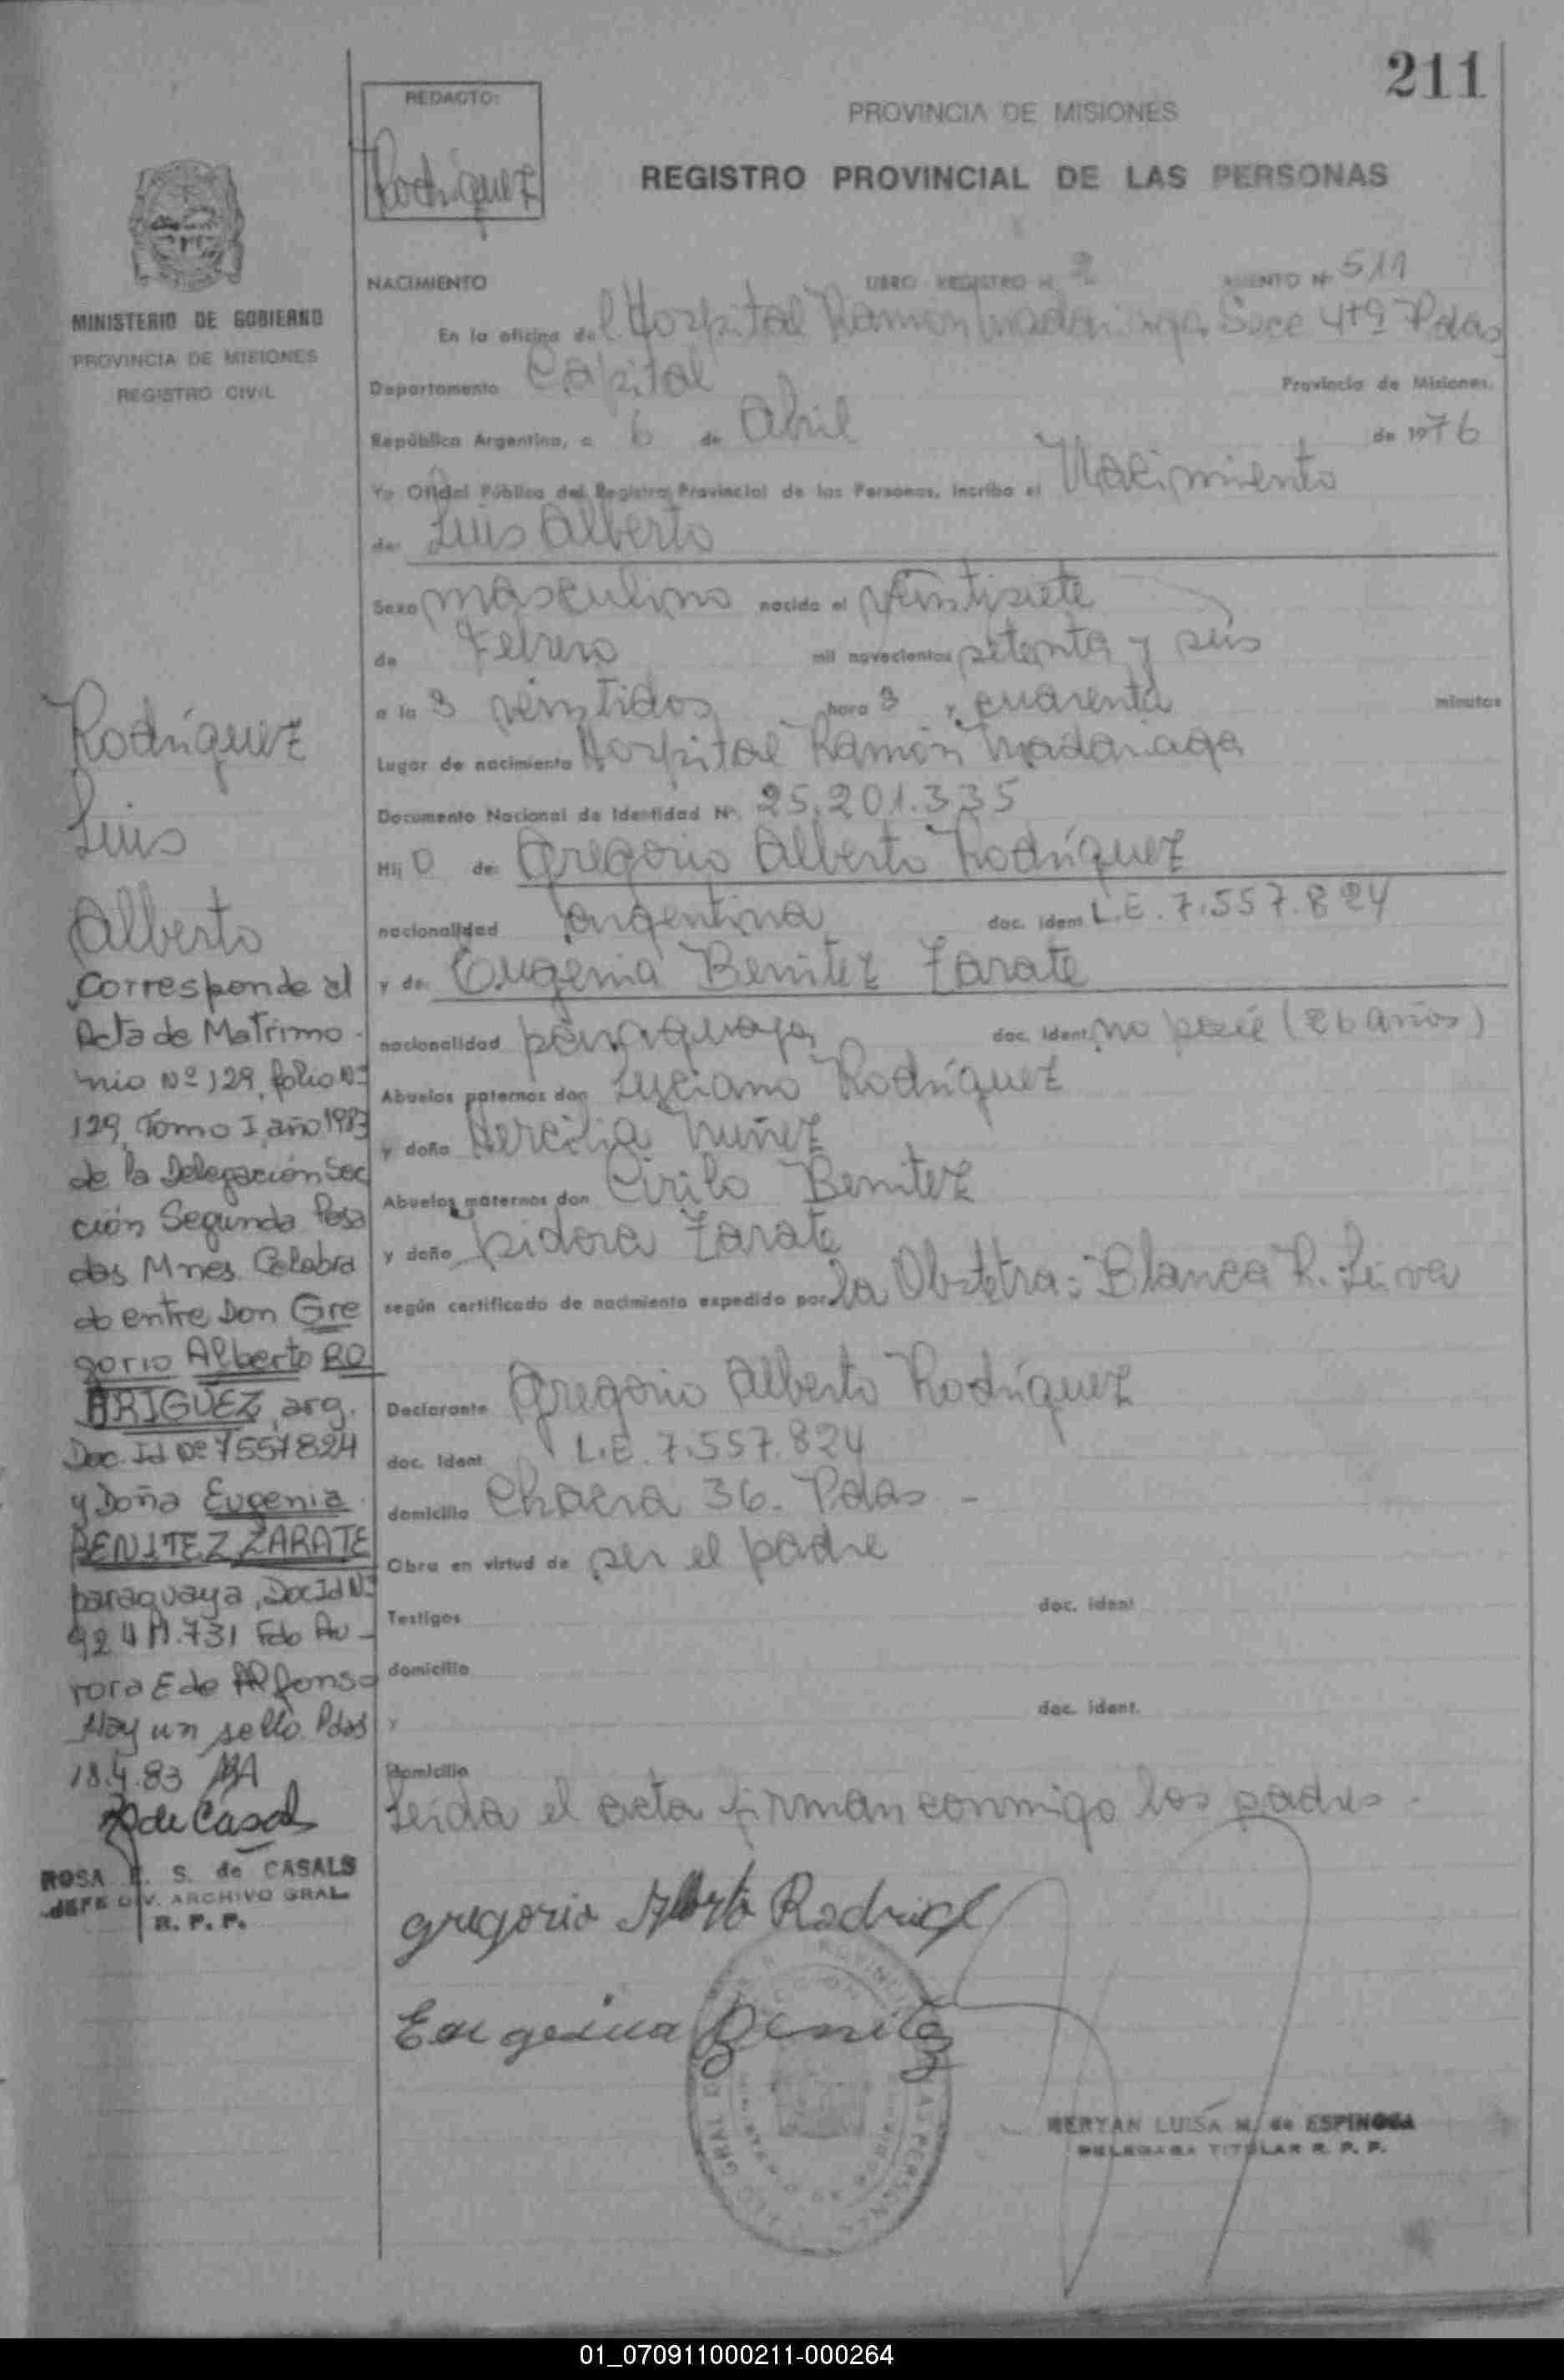 211
REDACTO:
Rodríguez
PROVINCIA DE MISIONES
REGISTRO PROVINCIAL DE LAS PERSONAS
MINISTERIO DE GOBIERNO
PROVINCIA DE MISIONES
REGISTRO CIVIL
NACIMIENTO LIBRO REGISTRO N. 2 ASIENTO Nº 511
En la oficina del Hospital Ramón Madariaga Secc 4tª Pdas
Departamento Capital Provincia de Misiones.
República Argentina, a 6 de Abril de 1976
Yo Oficial Público del Registro Provincial de las Personas, inscribo el Nacimiento
de: Luis Alberto
Sexo masculino nacido el veintisiete
de Febrero mil novecientos setenta y seis
a la s veintidos hora s y cuarenta minutos
Lugar de nacimiento Hospital Ramón Madariaga
Documento Nacional de Identidad Nº. 25.201.335
Hij o de: Gregorio Alberto Rodríguez
nacionalidad argentina doc. ident L.E. 7.557.824
y de: Eugenia Benitez Zarate
nacionalidad paraguaya doc. ident. no posée (26 años)
Abuelos paternos don Luciano Rodríguez
y doña Hercilia Nuñez
Abuelos maternos don Cirilo Benitez
y doña Isidora Zarate
según certificado de nacimiento expedido por la Obstetra: Blanca R. Leiva
Declarante Gregorio Alberto Rodríguez
doc. ident L.E. 7.557.824
domicilio Chacra 36. Pdas -
Obra en virtud de ser el padre
Testigos doc. ident
domicilio
y doc. ident.
domicilio
Leída el acta firman conmigo los padres.
gregorio Alberto
Eugenia Benitez
MERYAN LUISA M. de ESPINOSA
DELEGADA TITULAR R. P. P.
Rodríguez
Luis
Alberto
Corresponde al
Acta de Matrimo-
nio Nº 129, folio Nº
129, Tomo I, año 1983
de la Delegación Sec
ción Segunda Posa
das Mnes. Celebra
do entre Don Gre
gorio Alberto RO
DRIGUEZ, arg.
Doc. Id Nº 7557824
y Doña Eugenia
BENITEZ ZARATE
paraguaya, Doc Id Nº
Fdo Au-
rora E de Alfonso
Hay un sello. Pdas
18.4.83
de Casals
ROSA E. S. de CASALS
JEFE DIV. ARCHIVO GRAL
R. P. P.
01_070911000211-000264